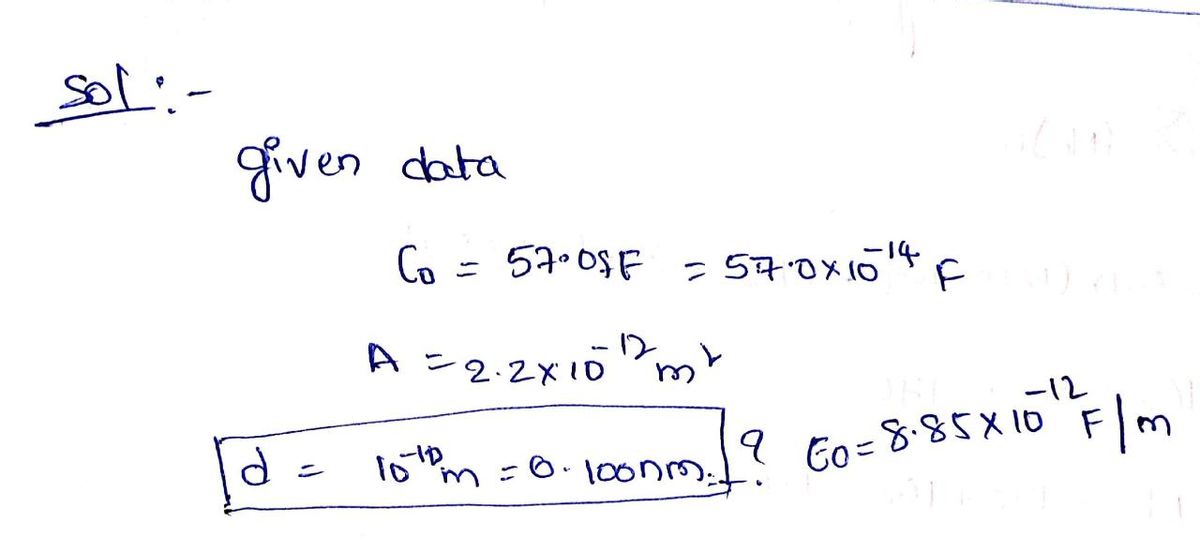 Sol :-
given data
C₀ = 57.0fF = 57.0×10⁻¹⁴ F
A = 2.2×10⁻¹² m²
d = 10⁻¹⁰m = 0.100nm. ? ϵ₀ = 8.85×10⁻¹² F/m